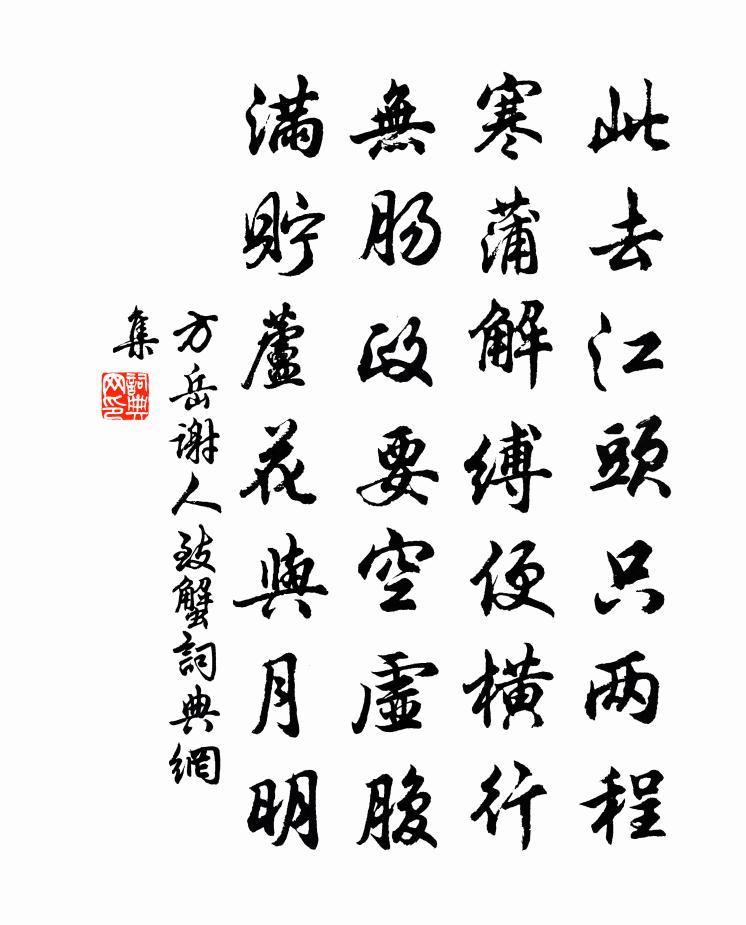 此去江頭只两程
寒蒲解縛便横行
無腸政要空虛腹
滿貯蘆花與月明
方岳謝人致蟹詞典網
集
詞典网印